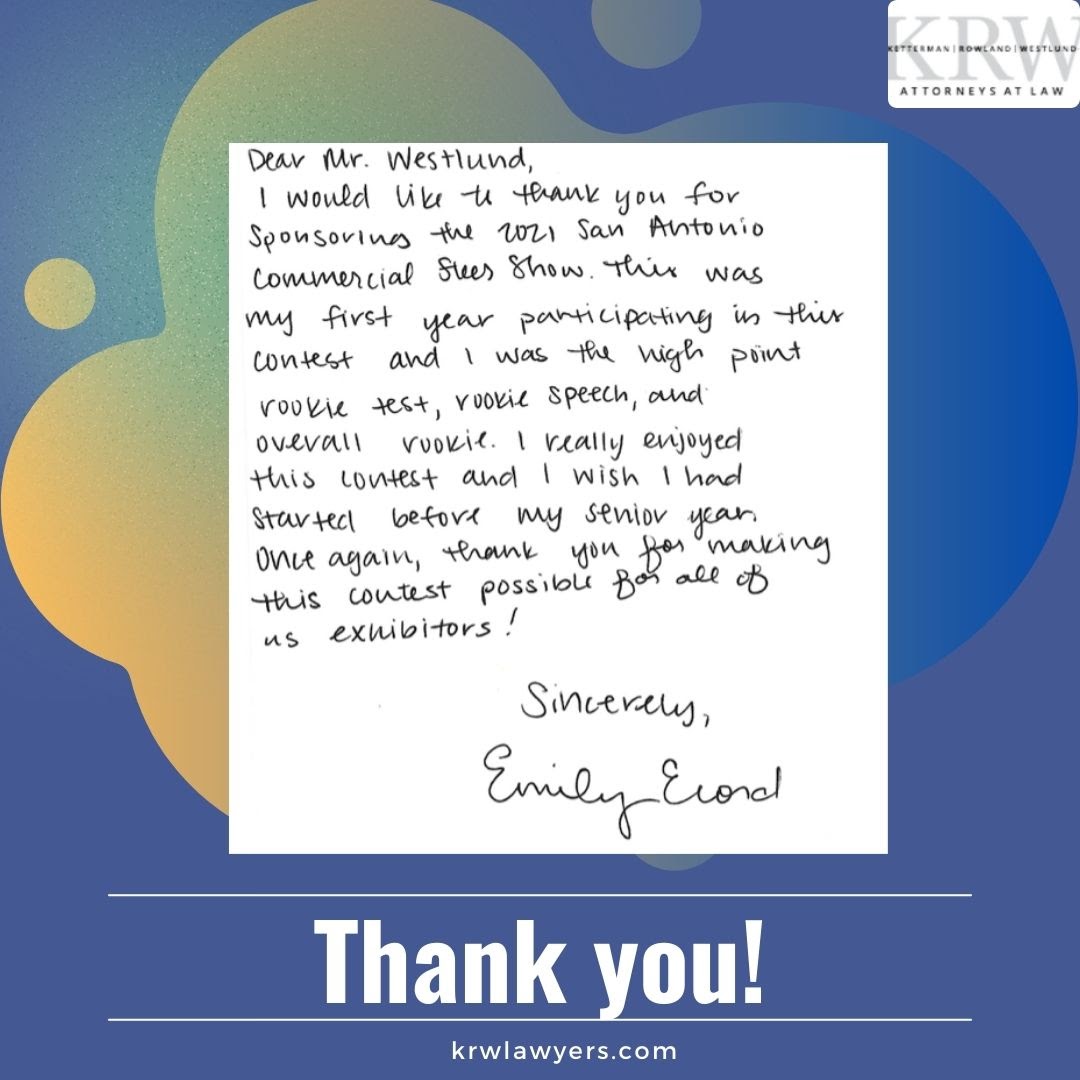 KRW
KETTERMAN | ROWLAND | WESTLUND
ATTORNEYS AT LAW
Dear Mr. Westlund,
I would like to thank you for
sponsoring the 2021 San Antonio
Commercial Steer Show. This was
my first year participating in this
contest and I was the high point
rookie test, rookie speech, and
overall rookie. I really enjoyed
this contest and I wish I had
started before my senior year.
Once again, thank you for making
this contest possible for all of
us exhibitors!
Sincerely,
Emily
Thank you!
krwlawyers.com